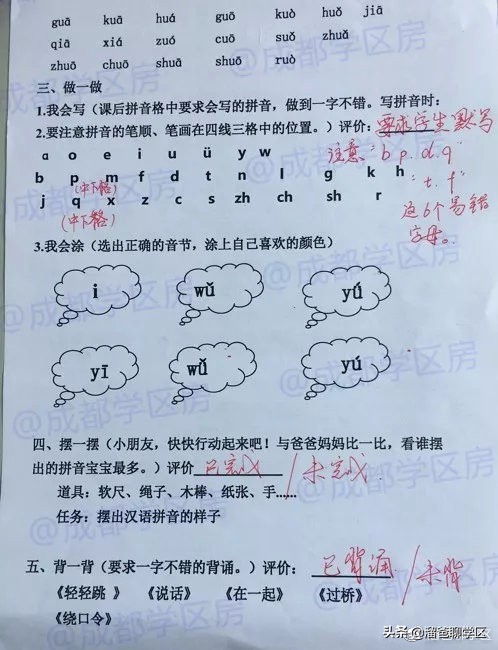 guā kuā huá guō kuò huǒ jiā
qiā xiá zuó cuō suǒ zhuǎ
zhuō chuō shuā shuō ruò
三、做一做
1.我会写（课后拼音格中要求会写的拼音，做到一字不错。写拼音时：
2.要注意拼音的笔顺、笔画在四线三格中的位置。）评价：要求学生默写
a o e i u ü y w
注意：b p. d. q
b p m f d t n l g k h
(中下格)
t. f
j q x z c s zh ch sh r
(中下格)
这6个易错
字母。
3.我会涂（选出正确的音节，涂上自己喜欢的颜色）
i wǔ yú
yī wǔ yú
四、摆一摆（小朋友，快快行动起来吧！与爸爸妈妈比一比，看谁摆
出的拼音宝宝最多。）评价 已完成/未完成
道具：软尺、绳子、木棒、纸张、手……
任务：摆出汉语拼音的样子
五、背一背（要求一字不错的背诵。）评价： 已背诵/未背
《轻轻跳 》 《说话》 《在一起》 《过桥》
《绕口令》
@成都学区房
头条 @溜爸聊学区